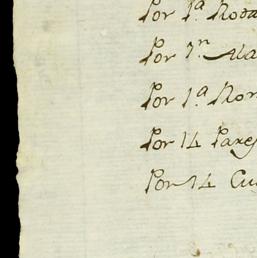 Por 1ª Roda
Por 1
Por 1ª Ror
Por 14 Pares
Por 14 Cu